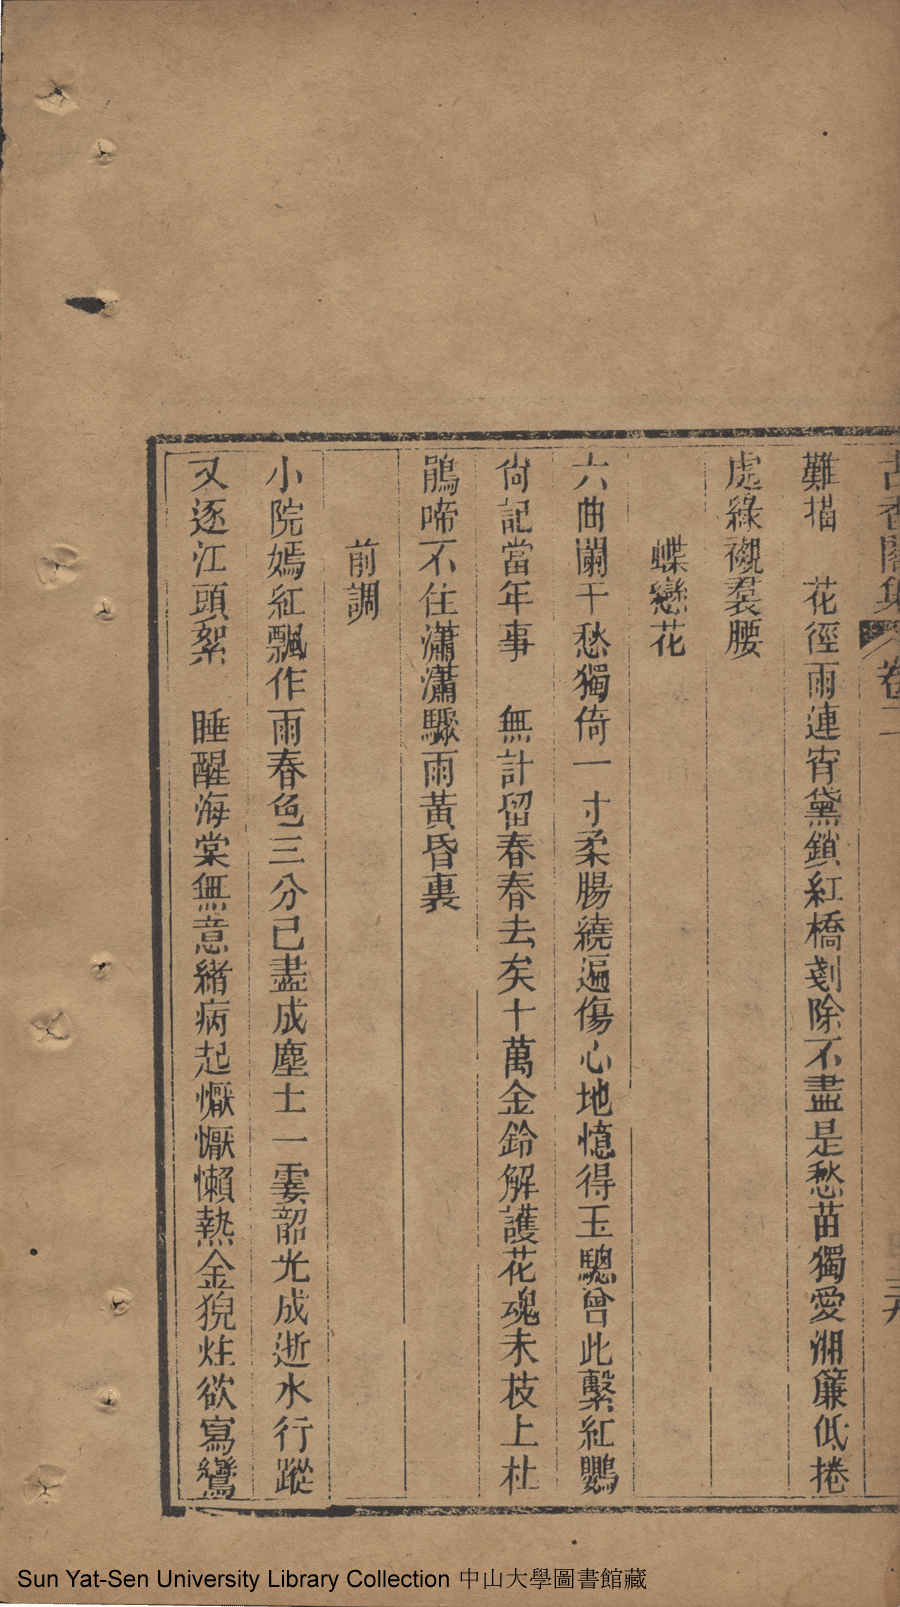 古香閣集 卷二
難描　花徑雨連宵黛鎖紅橋剗除不盡是愁苗獨愛湘簾低捲
處綠襯裠腰
蝶戀花
六曲闌干愁獨倚一寸柔腸繞遍傷心地憶得玉驄曾此繫紅鸚
尙記當年事　無計留春春去矣十萬金鈴解護花魂未枝上杜
鵑啼不住瀟瀟驟雨黃昏裏
前調
小院嫣紅飄作雨春色三分已盡成塵土一霎韶光成逝水行蹤
又逐江頭絮　睡醒海棠無意緒病起懨懨懶熱金猊炷欲寫鸞
Sun Yat-Sen University Library Collection 中山大學圖書館藏